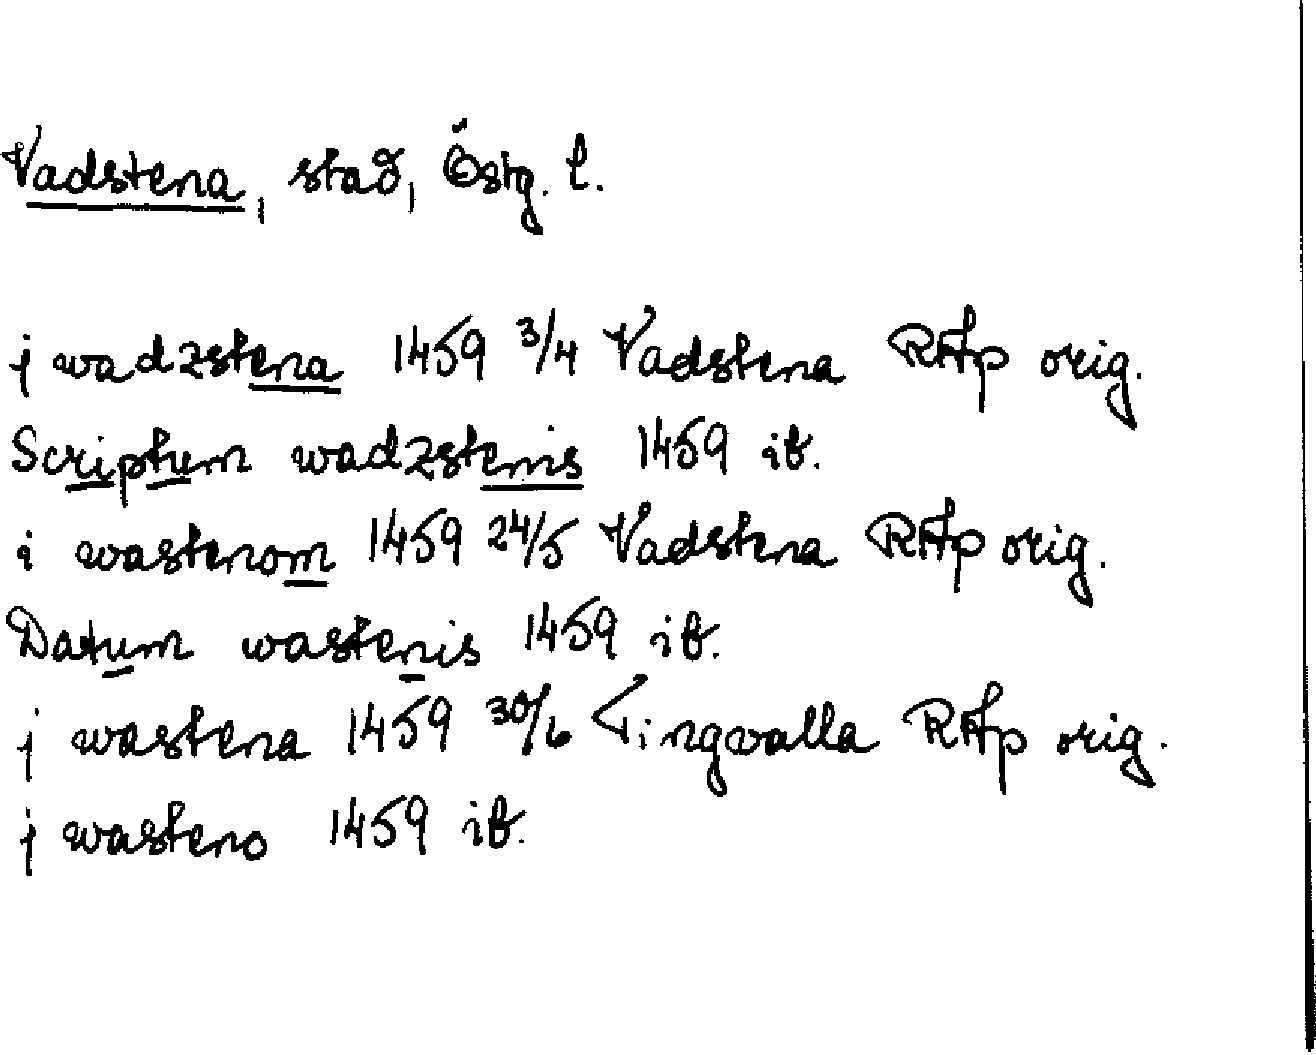 Vadstena, stad, Östg. l.
j wadzstena 1459 3/4 Vadstena RAp orig.
Scriptum wadzstenis 1459 ib.
i wastenom 1459 24/5 Vadstena RAp orig.
Datum wastenis 1459 ib.
j wastena 1459 30/6 Tingvalla RAp orig.
j wasteno 1459 ib.